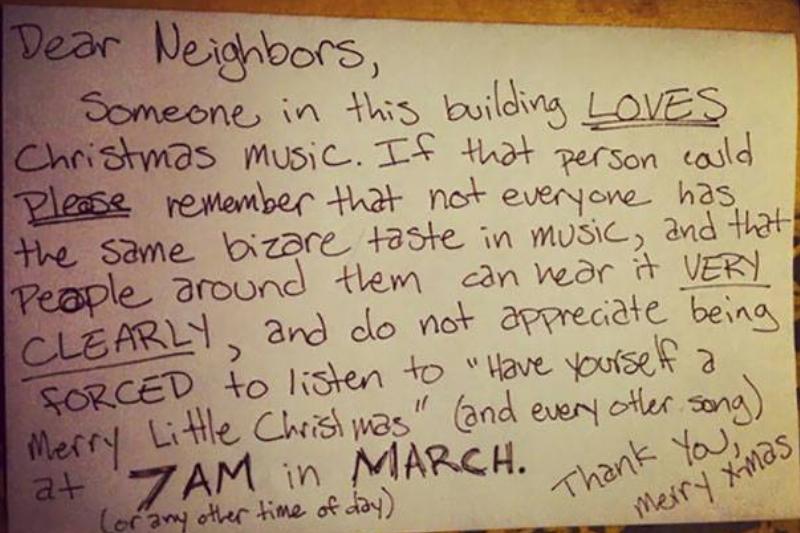 Dear Neighbors,
Someone in this building LOVES
Christmas music. If that person could
Please remember that not everyone has
the same bizare taste in music, and that
People around them can hear it VERY
CLEARLY, and do not appreciate being
FORCED to listen to "Have yourself a
Merry Little Christmas" (and every other song)
at 7AM in MARCH.
(or any other time of day)
Thank You,
Merry X-mas